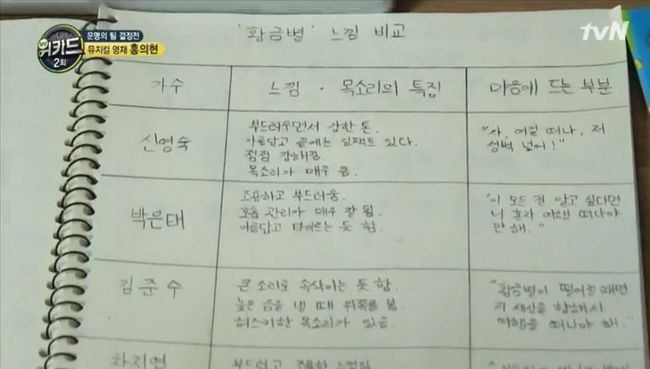 위키드
2회
운명의 팀 결정전
뮤지컬 영재 홍의현
tvN
'황금별' 느낌 비교
가수
느낌 · 목소리의 특징
마음에 드는 부분
신영숙
부드러우면서 강한 톤.
아름답고 끝에는 임팩트 있다.
점점 강해짐.
목소리가 매우 큼.
"자, 여길 떠나, 저
성벽 넘어!"
박은태
조용하고 부드러움.
호흡 관리가 매우 잘 됨.
아름답고 타이르는 듯 함.
"이 모든 건 알고 싶다면
너 혼자 여행 떠나야
만 해."
김준수
큰 소리로 속삭이는 듯 함.
높은 음을 낼 때 위쪽을 봄.
허스키한 목소리가 있음.
"황금별이 떨어질 때면
이 세상을 향해서
여행을 떠나야 해."
차지연
부드럽고